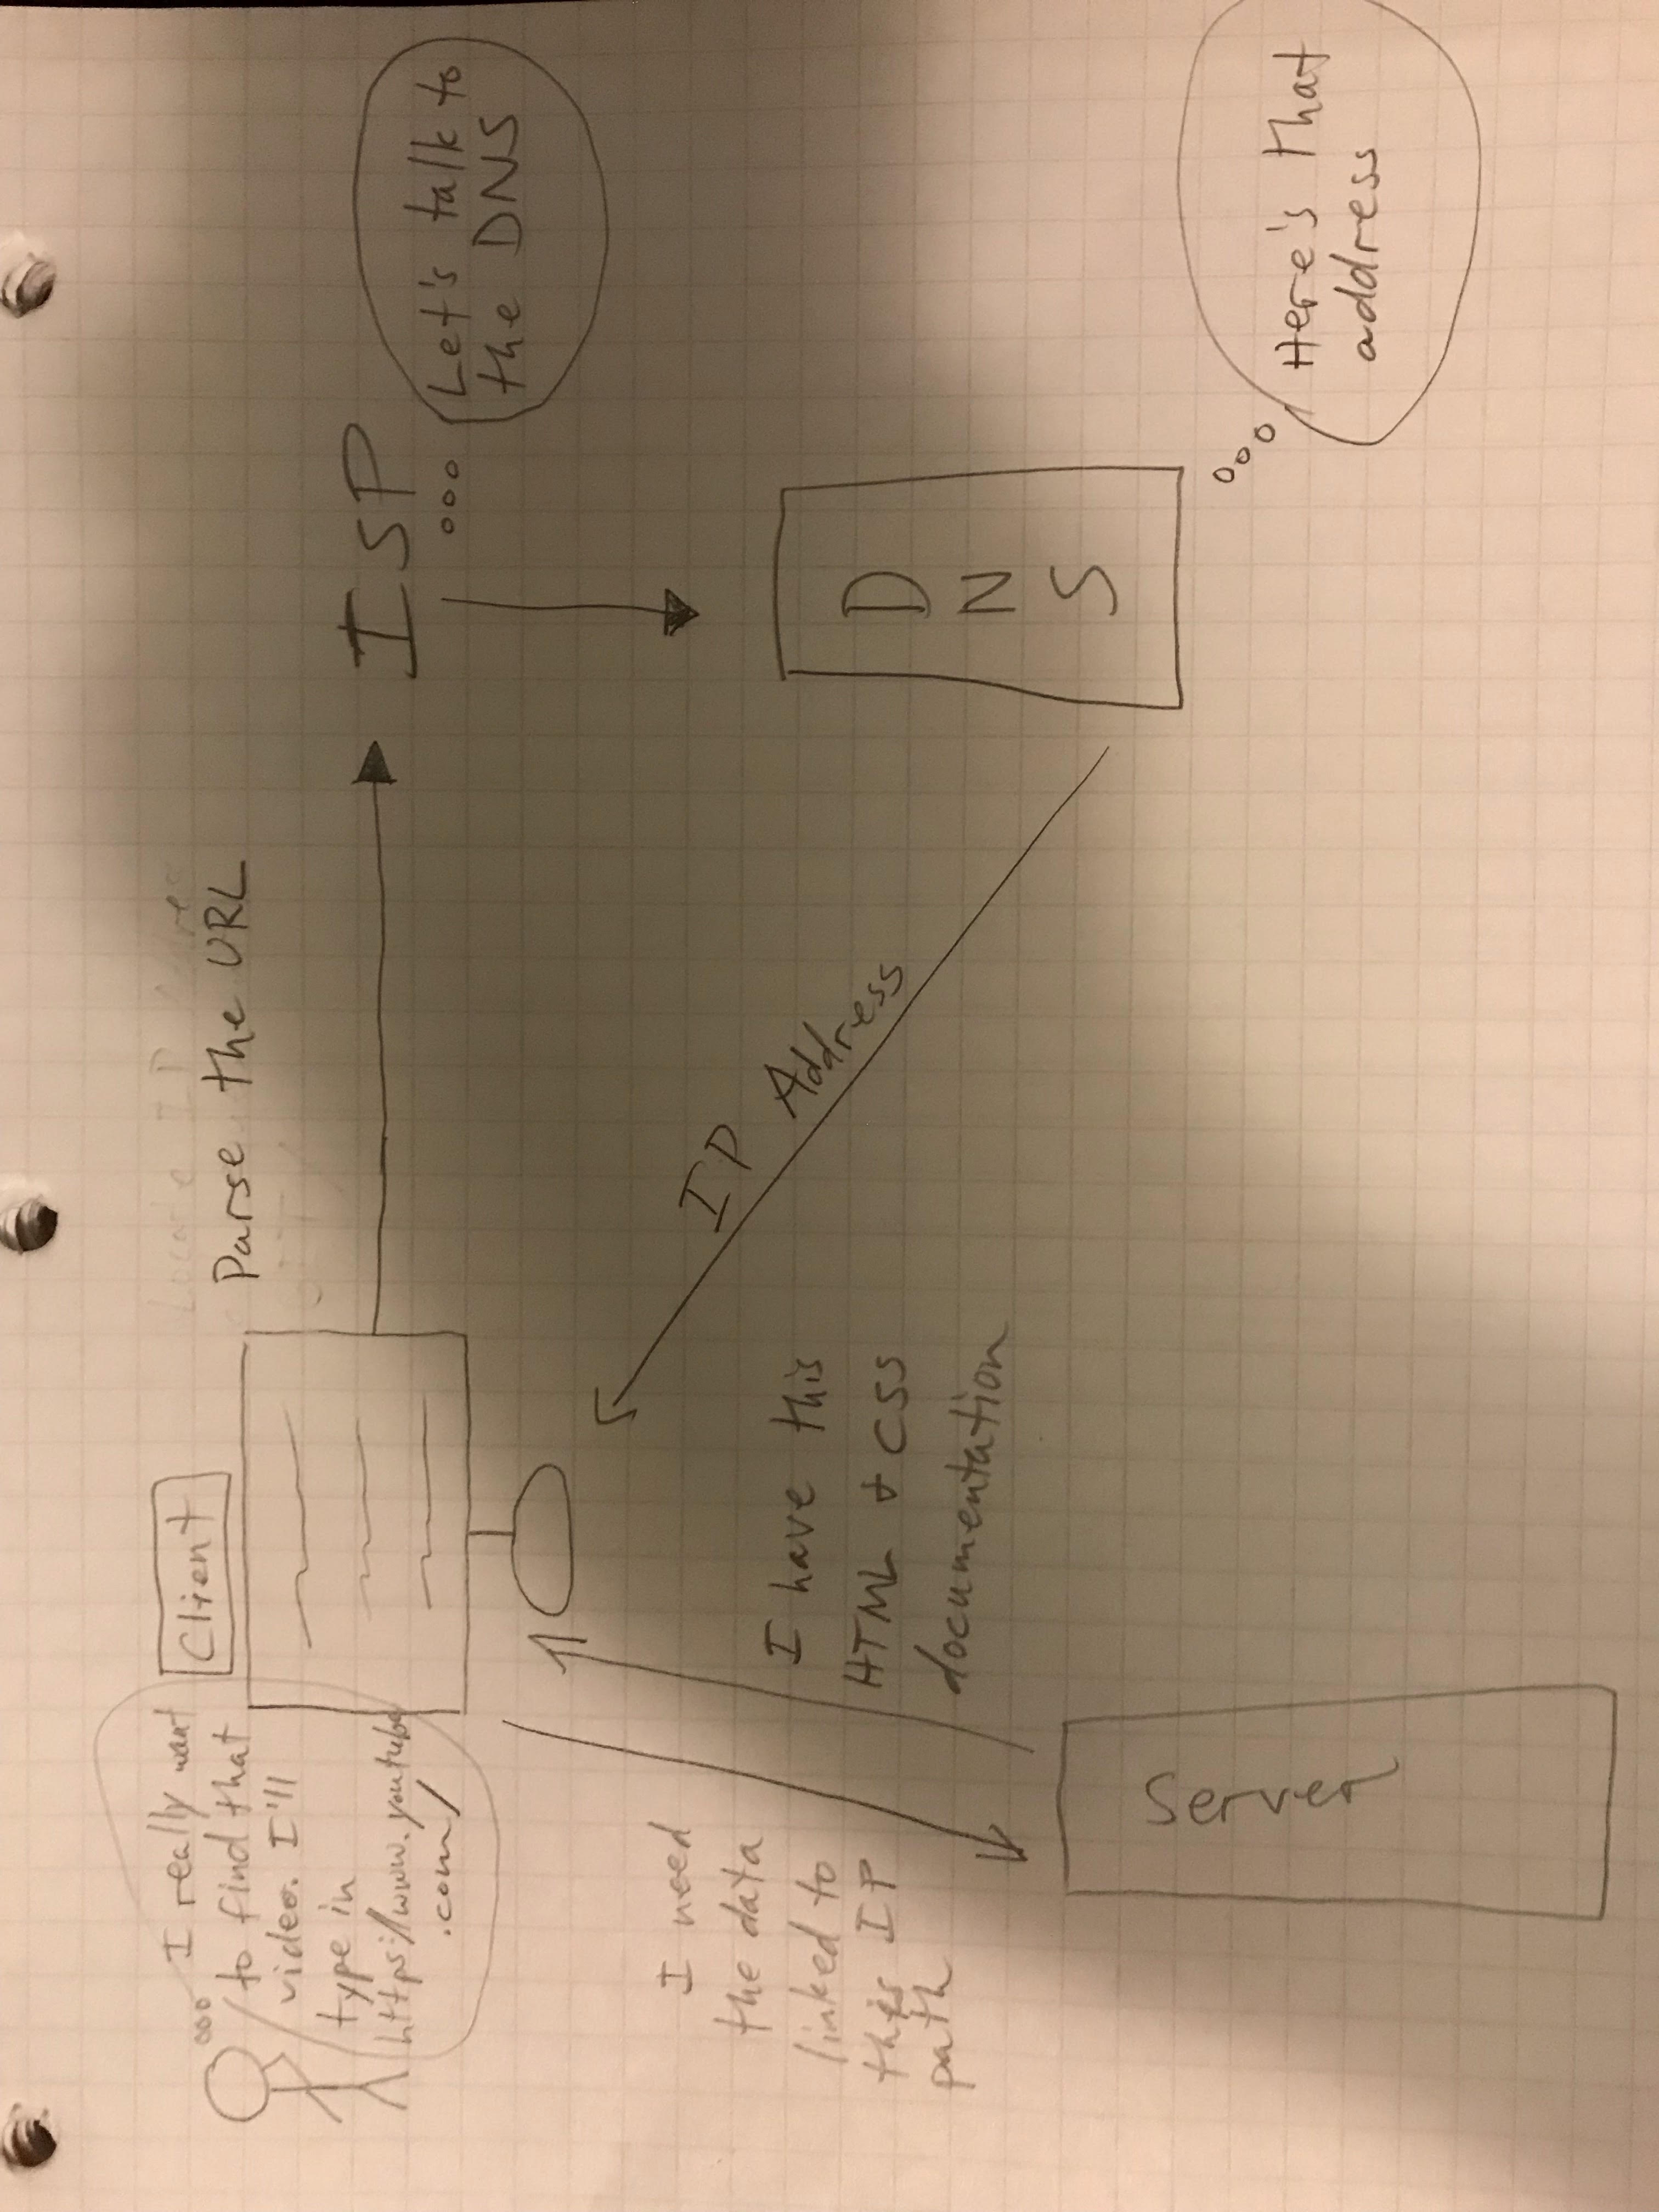 I really want
to find that
video. I'll
type in
https://www.youtube
.com/
Client
Parse the URL
ISP
Let's talk to
the DNS
D
N
S
Here's that
address
IP Address
I need
the data
linked to
this IP
path
I have this
HTML + CSS
documentation
Server